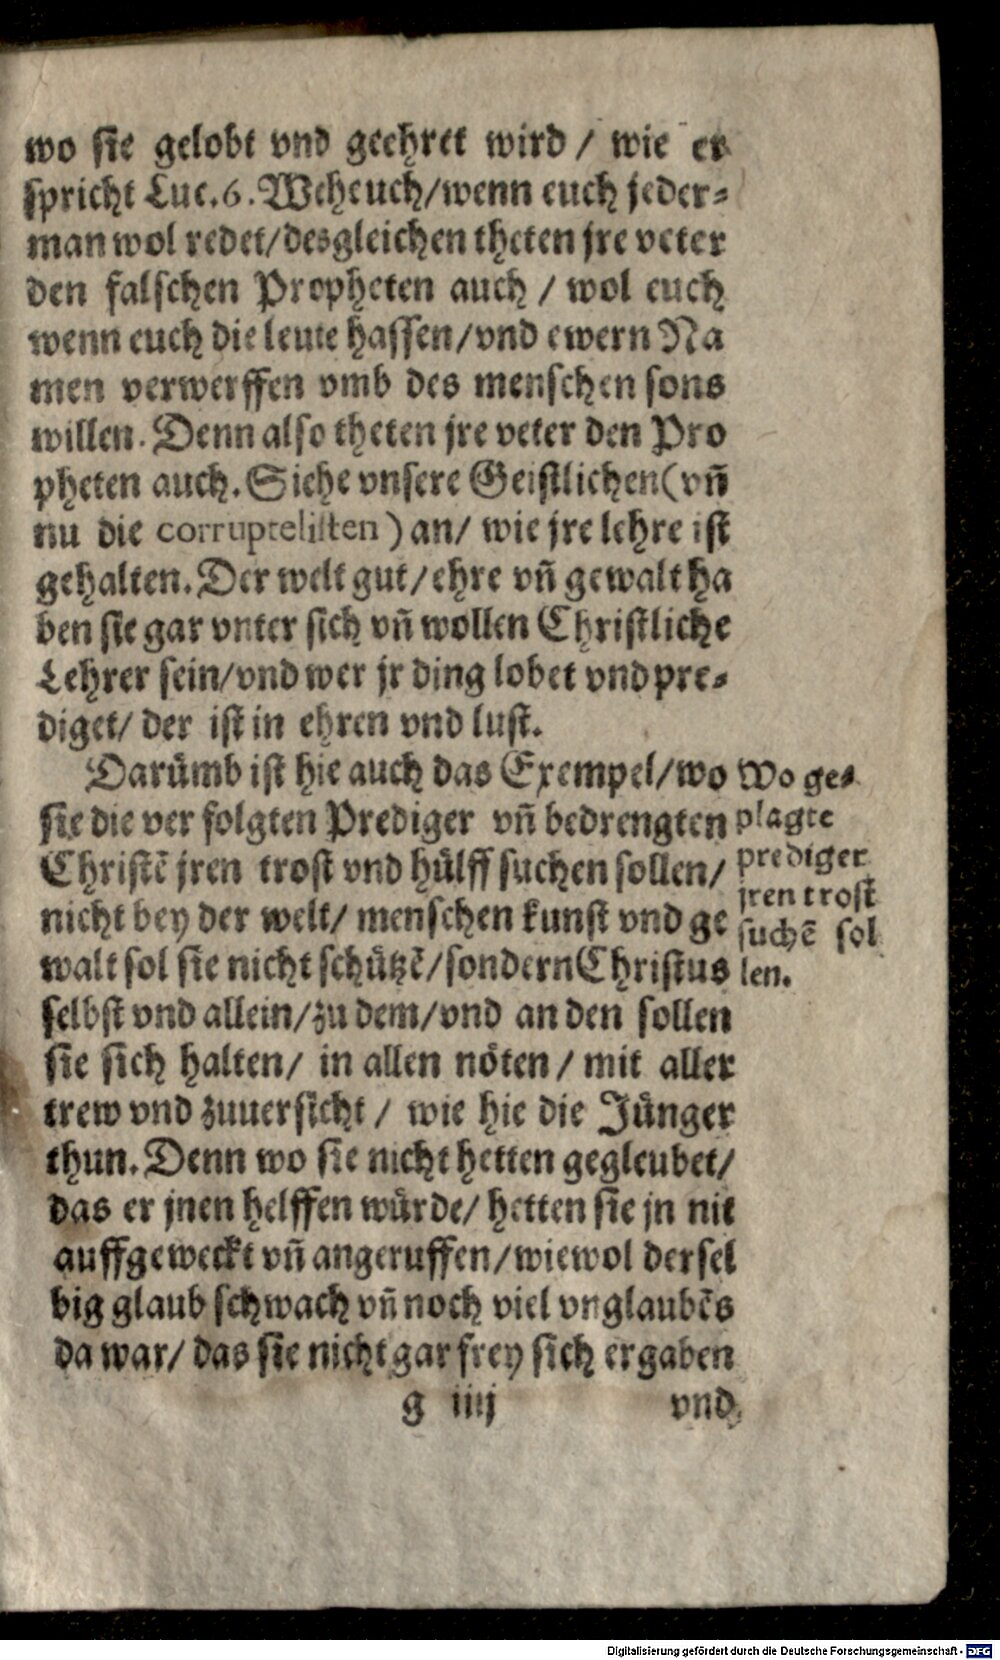 wo sie gelobt vnd geehret wird / wie er
spricht Luc. 6. Weh euch / wenn euch jeder⸗
man wol redet / desgleichen theten jre veter
den falschen Propheten auch / wol euch
wenn euch die leute hassen / vnd ewern Na
men verwerffen vmb des menschen sons
willen. Denn also theten jre veter den Pro
pheten auch. Siehe vnsere Geistlichen (vñ
nu die corruptelisten) an / wie jre lehre ist
gehalten. Der welt gut / ehre vñ gewalt ha
ben sie gar vnter sich vñ wollen Christliche
Lehrer sein / vnd wer jr ding lobet vnd pre⸗
diget / der ist in ehren vnd lust.
Darümb ist hie auch das Exempel / wo
sie die verfolgten Prediger vñ bedrengten
Christē jren trost vnd hülff suchen sollen /
nicht bey der welt / menschen kunst vnd ge
walt sol sie nicht schützē / sondern Christus
selbst vnd allein / zu dem / vnd an den sollen
sie sich halten / in allen nöten / mit aller
trew vnd zuuersicht / wie hie die Jünger
thun. Denn wo sie nicht hetten gegleubet /
das er jnen helffen würde / hetten sie jn nit
auffgeweckt vñ angeruffen / wiewol dersel
big glaub schwach vñ noch viel vnglaubēs
da war / das sie nicht gar frey sich ergaben
g iiij
vnd
Wo ge⸗
plagte
prediger
jren trost
suchē sol
len.
Digitalisierung gefördert durch die Deutsche Forschungsgemeinschaft - DFG